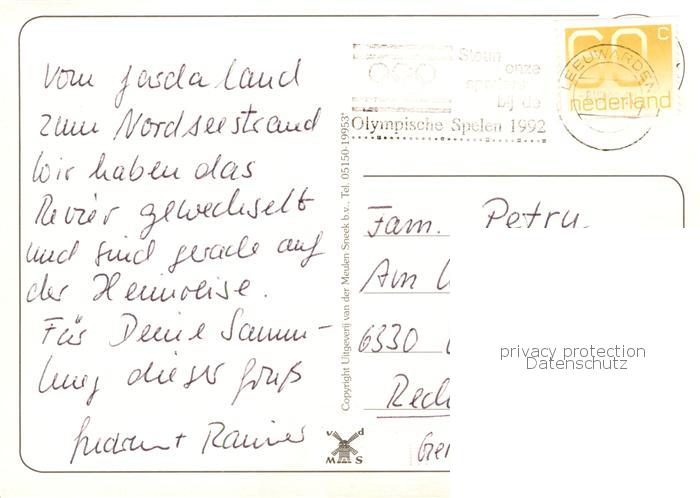 Vom Gardaland
zum Nordseestrand
Wir haben das
Revier gewechselt
und sind gerade auf
der Heimreise.
Für Deine Samm-
lung dieser Gruß
Gudrun + Rainer
Steun
onze
sporters
bij de
Olympische Spelen 1992
LEEUWARDEN
60 c
nederland
Copyright Uitgeverij van der Meulen Sneek b.v., Tel. 05150-19953*
v d
M S
Fam. Petry
Am
6330
privacy protection
Datenschutz